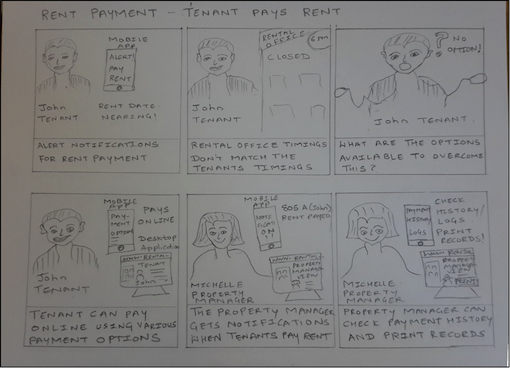 RENT PAYMENT - TENANT PAYS RENT
MOBILE
APP
ALERT
PAY
RENT
John
TENANT
RENT DATE
NEARING!
ALERT NOTIFICATIONS
FOR RENT PAYMENT
RENTAL
OFFICE
6 AM
CLOSED
John
TENANT
RENTAL OFFICE TIMINGS
DON'T MATCH THE
TENANTS TIMINGS
? NO
OPTION!
John TENANT
WHAT ARE THE OPTIONS
AVAILABLE TO OVERCOME
THIS?
MOBILE
APP
PAY-
MENT
OPTIONS
PAYS
ONLINE
Desktop
Applicatio
TENANT
John
John
TENANT
TENANT CAN PAY
ONLINE USING VARIOUS
PAYMENT OPTIONS
MOBILE
APP
805 A (John)
RENT PAYED
PROPERTY
MANAGER
VIEW
MICHELLE
PROPERTY
MANAGER
THE PROPERTY MANAGER
GETS NOTIFICATIONS
WHEN TENANTS PAY RENT
PAYMENT
HISTORY
LOGS
CHECK
HISTORY/
LOGS
PRINT
RECORDS!
PROPERTY
MANAGER
VIEW
PRINT
MICHELLE
PROPERTY
MANAGER
PROPERTY MANAGER CAN
CHECK PAYMENT HISTORY
AND PRINT RECORDS